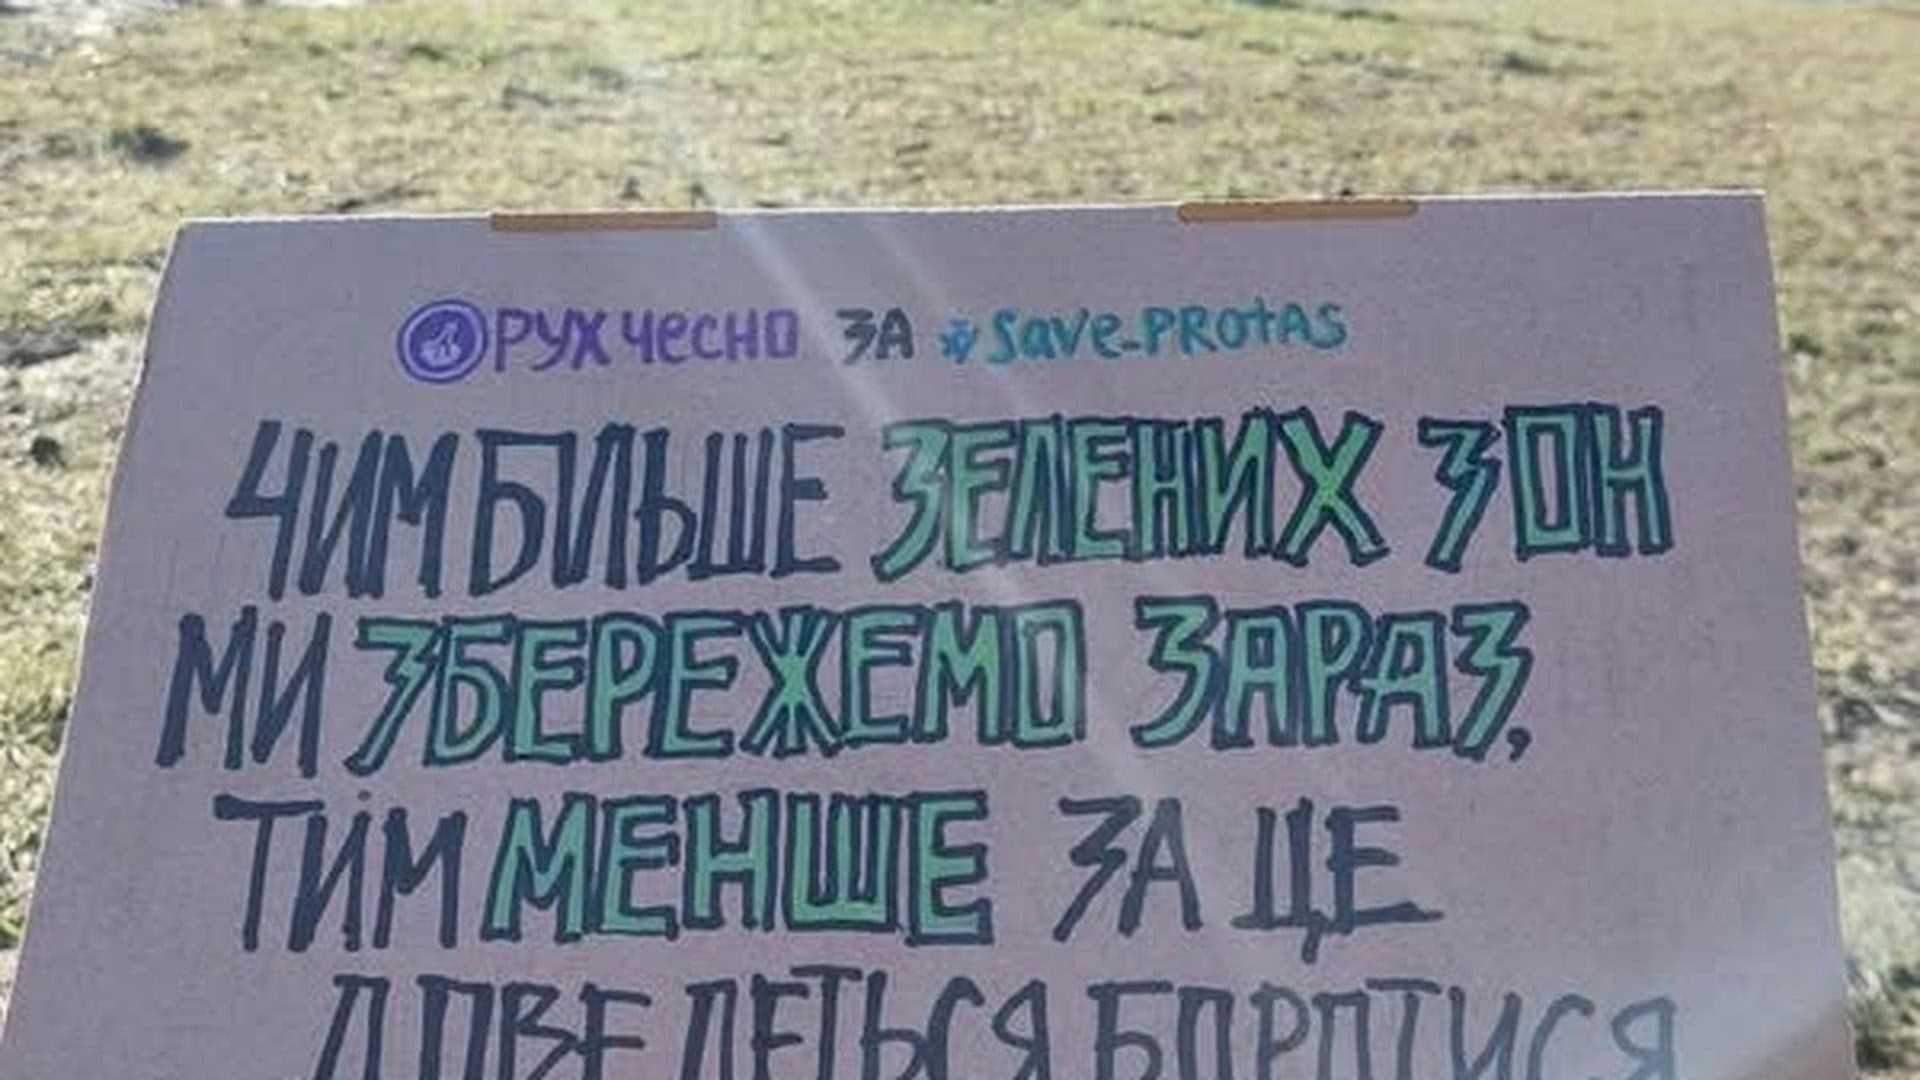 РУХ ЧЕСНО ЗА #Save_PROTAS
ЧИМ БІЛЬШЕ ЗЕЛЕНИХ ЗОН
МИ ЗБЕРЕЖЕМО ЗАРАЗ,
ТИМ МЕНШЕ ЗА ЦЕ
ДОВЕДЕТЬСЯ БОРОТИСЯ